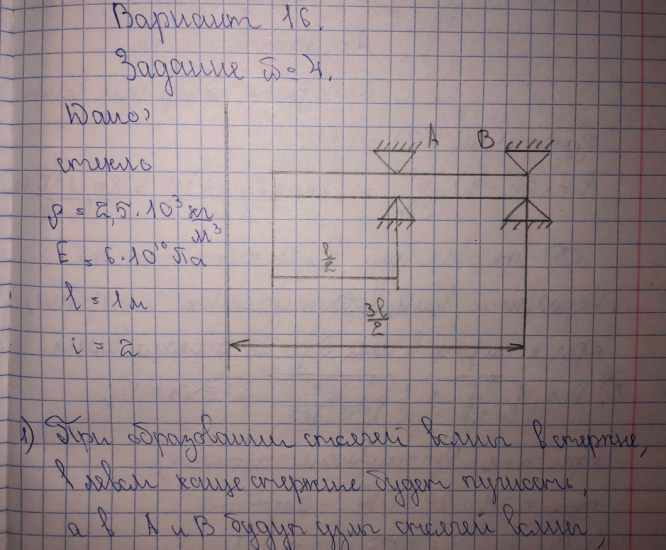 Вариант 16.
Задание п=4.
A B
Дано:
стекло
ρ = 2,5·10³ кг/м³
E = 6·10¹⁰ Па
l/2
l = 1м
3l/2
i = 2
1) При образовании стоячей волны в стержне,
в левом конце стержне будет пучность,
а в A и B будут узлы стоячей волны,